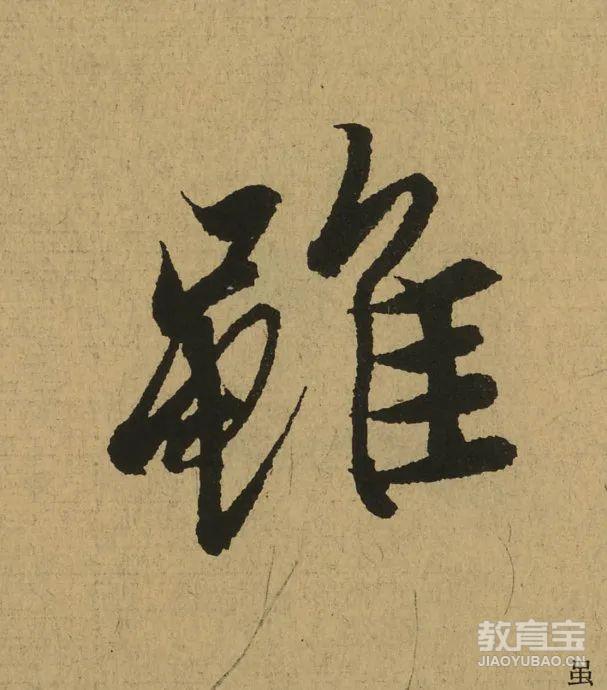 雖
教育宝
JIAOYUBAO.CN
虽